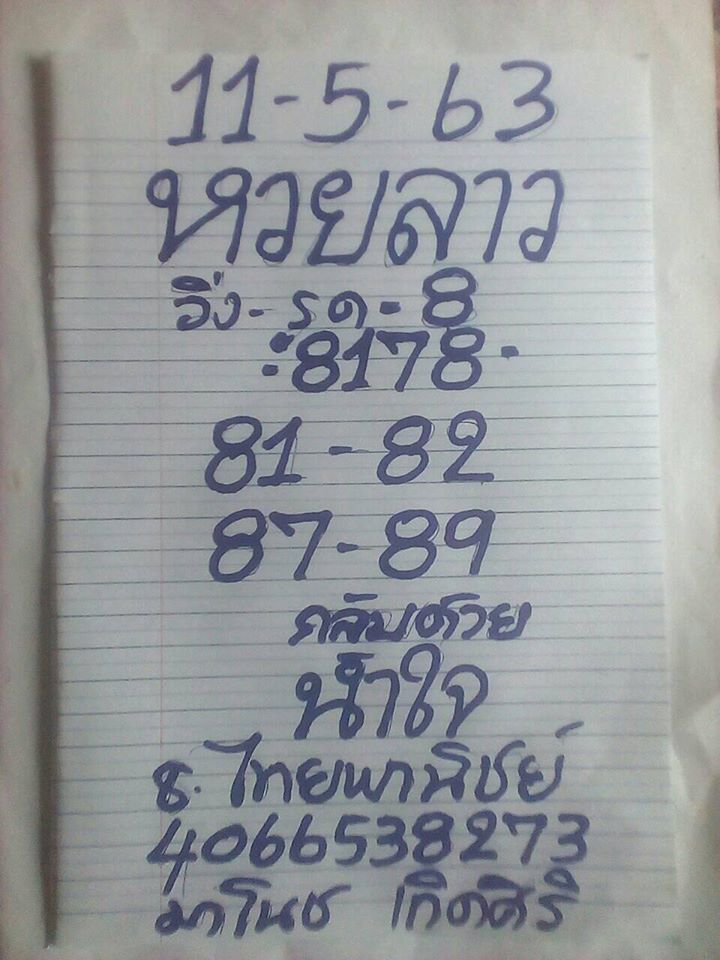 11-5-63
หวยลาว
วิ่ง-รูด-8
:8178-
81-82
87-89
กลับด้วย
น้ำใจ
ธ.ไทยพานิชย์
4066538273
มาโนช เกิดศิริ